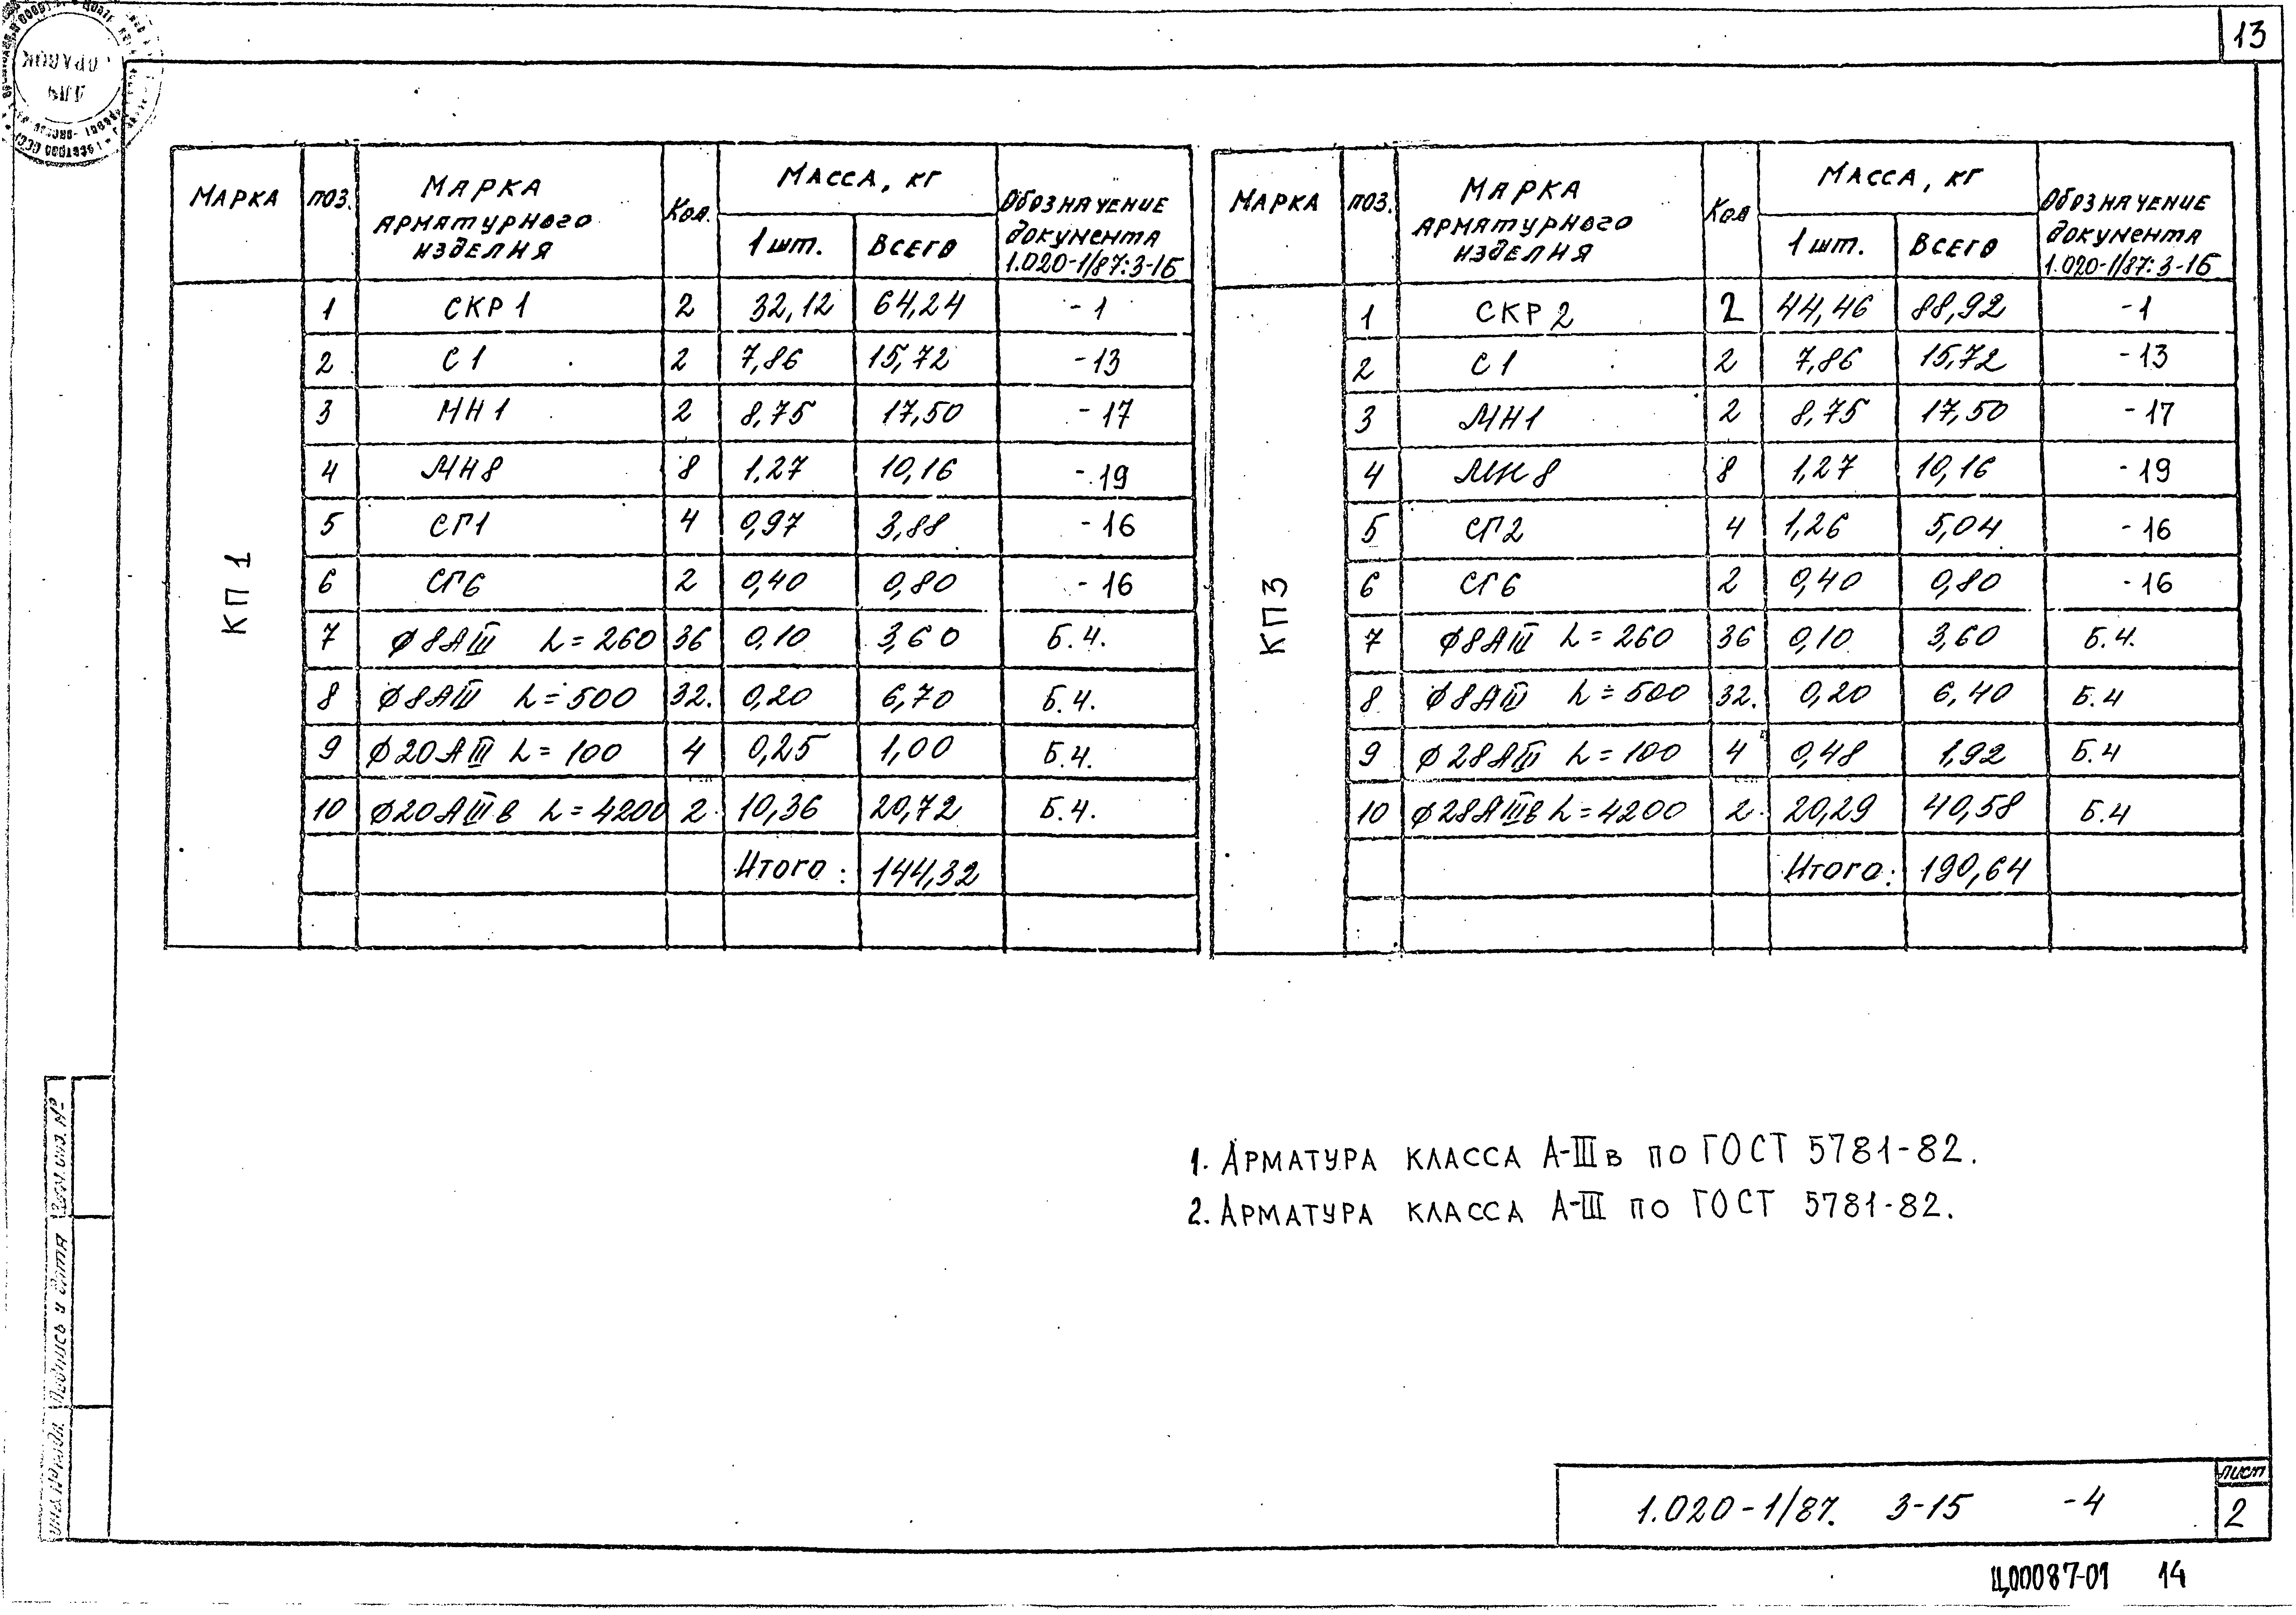 13
МАРКА ПОЗ. МАРКА АРМАТУРНОГО ИЗДЕЛИЯ Кол. МАССА, КГ 1 шт. ВСЕГО ОБОЗНАЧЕНИЕ ДОКУМЕНТА 1.020-1/87:3-15
КП 1
1 СКР 1 2 32,12 64,24 -1
2 С 1 2 7,86 15,72 -13
3 МН 1 2 8,75 17,50 -17
4 МН 8 8 1,27 10,16 -19
5 СГ1 4 0,97 3,88 -16
6 СГ6 2 0,40 0,80 -16
7 Ø8АIII L=260 36 0,10 3,60 Б.Ч.
8 Ø8АIII L=500 32. 0,20 6,70 Б.Ч.
9 Ø20АIII L=100 4 0,25 1,00 Б.Ч.
10 Ø20АIIIв L=4200 2 10,36 20,72 Б.Ч.
Итого: 144,32
МАРКА ПОЗ. МАРКА АРМАТУРНОГО ИЗДЕЛИЯ Кол МАССА, КГ 1 шт. ВСЕГО ОБОЗНАЧЕНИЕ ДОКУМЕНТА 1.020-1/87:3-15
КП3
1 СКР 2 2 44,46 88,92 -1
2 С 1 2 7,86 15,72 -13
3 МН1 2 8,75 17,50 -17
4 МН 8 8 1,27 10,16 -19
5 СГ2 4 1,26 5,04 -16
6 СГ6 2 0,40 0,80 -16
7 Ø8АIII L=260 36 0,10 3,60 Б.Ч.
8 Ø8АIII L=500 32. 0,20 6,40 Б.Ч
9 Ø28АIII L=100 4 0,48 1,92 Б.Ч
10 Ø28АIIIв L=4200 2 20,29 40,58 Б.Ч
Итого: 190,64
1. АРМАТУРА КЛАССА А-IIIв ПО ГОСТ 5781-82.
2. АРМАТУРА КЛАССА А-III ПО ГОСТ 5781-82.
Подпись и дата
1.020-1/87. 3-15 -4
Лист
2
Ц00087-01 14